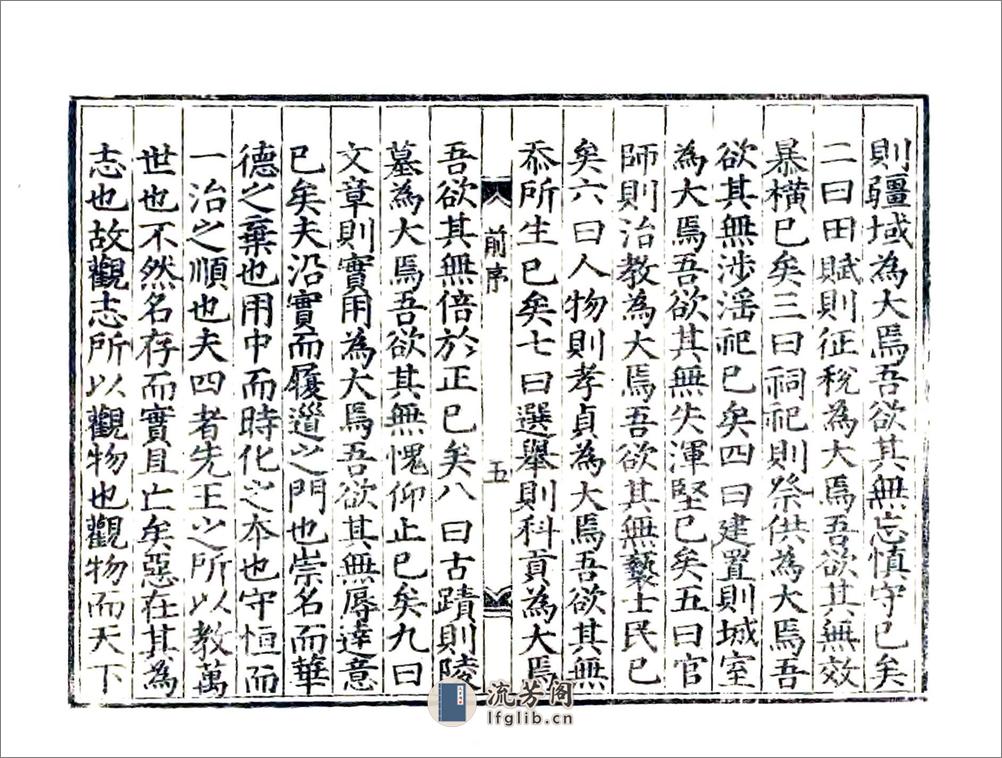 則疆域為大焉吾欲其無忘慎守已矣
二曰田賦則征稅為大焉吾欲其無效
暴橫已矣三曰祠祀則祭供為大焉吾
欲其無涉滛祀已矣四曰建置則城室
為大焉吾欲其無失渾堅已矣五曰官
師則治教為大焉吾欲其無褻士民已
矣六曰人物則孝貞為大焉吾欲其無
忝所生已矣七曰選舉則科貢為大焉
前序
五
吾欲其無倍於正已矣八曰古蹟則陵
墓為大焉吾欲其無愧仰止已矣九曰
文章則實用為大焉吾欲其無辱逹意
已矣夫沿實而履道之門也崇名而華
德之棄也用中而時化之本也守恒而
一治之順也夫四者先王之所以教萬
世也不然名存而實且亡矣惡在其為
志也故觀志所以觀物也觀物而天下
流芳阁
lfglib.cn